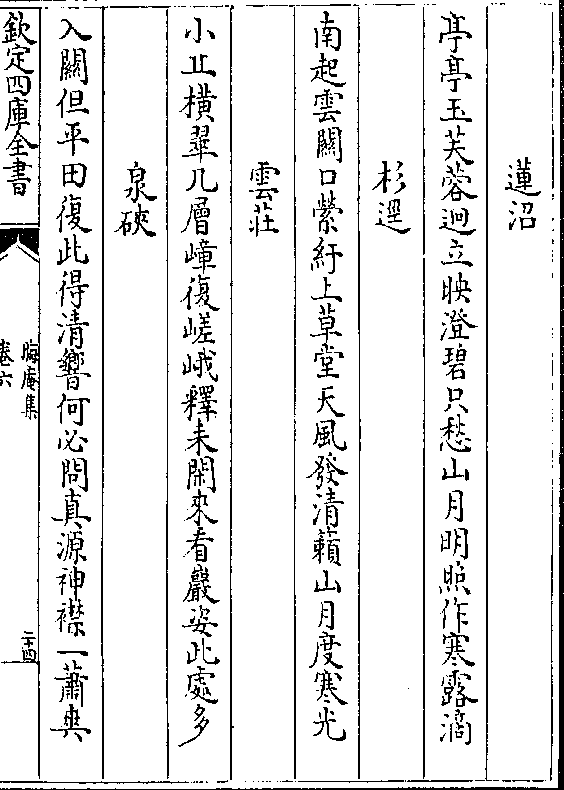 蓮沼
亭亭玉芙蓉迥立映澄碧只愁山月明照作寒露滴
杉逕
南起雲關口縈紆上草堂天風發清籟山月度寒光
雲莊
小丘橫翠几層嶂復嵯峨釋耒閒來看巖姿此處多
泉硤
入關但平田復此得清響何必問真源神襟一蕭爽
欽定四庫全書
晦庵集
卷六
二十四